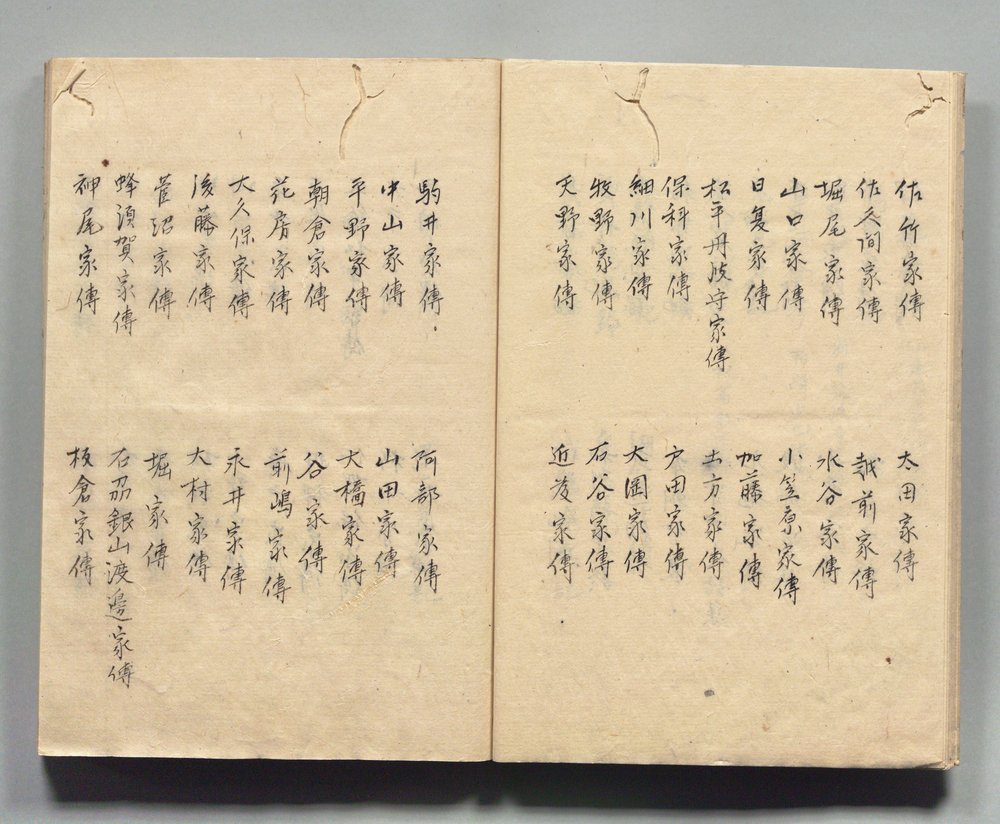 佐竹家傳
佐久间家傳
堀尾家傳
山口家傳
日夏家傳
松平丹波守家傳
保科家傳
細川家傳
牧野家傳
天野家傳
太田家傳
越前家傳
水谷家傳
小笠原家傳
加藤家傳
土方家傳
戸田家傳
大岡家傳
石谷家傳
近友家傳
駒井家傳
中山家傳
平野家傳
朝倉家傳
花房家傳
大久保家傳
後藤家傳
菅沼家傳
蜂須賀家傳
神尾家傳
阿部家傳
山田家傳
大橋家傳
谷家傳
前嶋家傳
永井家傳
大村家傳
堀家傳
石刕銀山渡邊家傳
板倉家傳